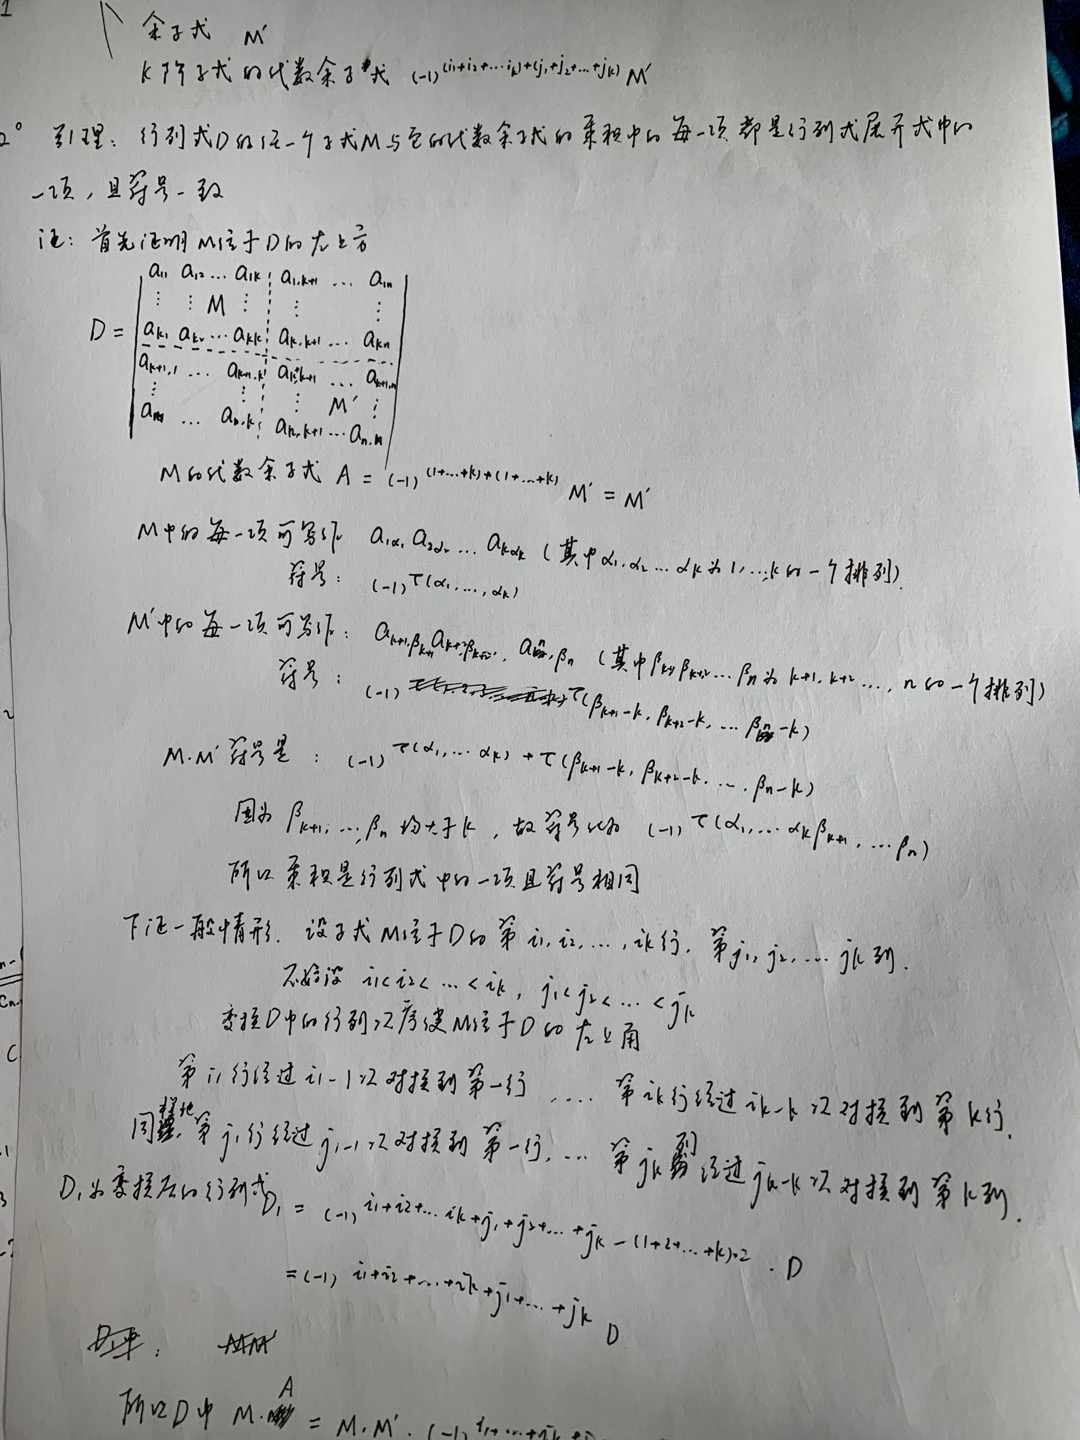 余子式 M'
k阶子式的代数余子式 (-1)^(i₁+i₂+…iₖ)+(j₁+j₂+…+jₖ) M'
2° 引理：行列式D的任一个子式M与它的代数余子式的乘积中的每一项都是行列式展开式中的
一项，且符号一致
证：首先证明M位于D的左上方
a₁₁ a₁₂ … a₁ₖ a₁,ₖ₊₁ … a₁ₙ
⋮ ⋮ M ⋮ ⋮ ⋮
D = aₖ₁ aₖ₂ … aₖₖ aₖ,ₖ₊₁ … aₖₙ
aₖ₊₁,₁ … aₖ₊₁,ₖ … aₖ₊₁,ₙ
⋮ ⋮ ⋮ M' ⋮
aₙ₁ … aₙ,ₖ aₙ,ₖ₊₁ … aₙ,ₙ
M的代数余子式 A = (-1)^(1+…+k)+(1+…+k) M' = M'
M中的每一项可写作 a₁α₁ a₂α₂ … aₖαₖ (其中α₁,α₂…αₖ为1,…,k的一个排列)
符号： (-1)^τ(α₁,…,αₖ)
M'中的每一项可写作： aₖ₊₁,βₖ₊₁ aₖ₊₂,βₖ₊₂…, aₙ,βₙ (其中βₖ₊₁βₖ₊₂…βₙ为k+1,k+2…,n的一个排列)
符号： (-1)^τ(βₖ₊₁-k, βₖ₊₂-k, …βₙ-k)
M·M'符号是： (-1)^τ(α₁,…αₖ)+τ(βₖ₊₁-k, βₖ₊₂-k, …, βₙ-k)
因为βₖ₊₁,…,βₙ均大于k，故符号 为 (-1)^τ(α₁,…αₖβₖ₊₁,…βₙ)
所以乘积是行列式中的一项且符号相同
下证一般情形．设子式M位于D的第i₁,i₂,…,iₖ行，第j₁,j₂,…jₖ列．
不妨设 i₁<i₂<…<iₖ, j₁<j₂<…<jₖ
变换D中的行列次序使M位于D的左上角
第i₁行经过i₁-1次对换到第一行 …. 第iₖ行经过iₖ-k次对换到第k行．
同样地，第j₁行经过j₁-1次对换到第一行，… 第jₖ列经过jₖ-k次对换到第k列．
D₁为变换后的行列式 D₁ = (-1)^i₁+i₂+…iₖ+j₁+j₂+…+jₖ-(1+2+…+k)·2 · D
=(-1)^i₁+i₂+…+iₖ+j₁+…+jₖ D
所以D中 M·A = M·M'·(-1)